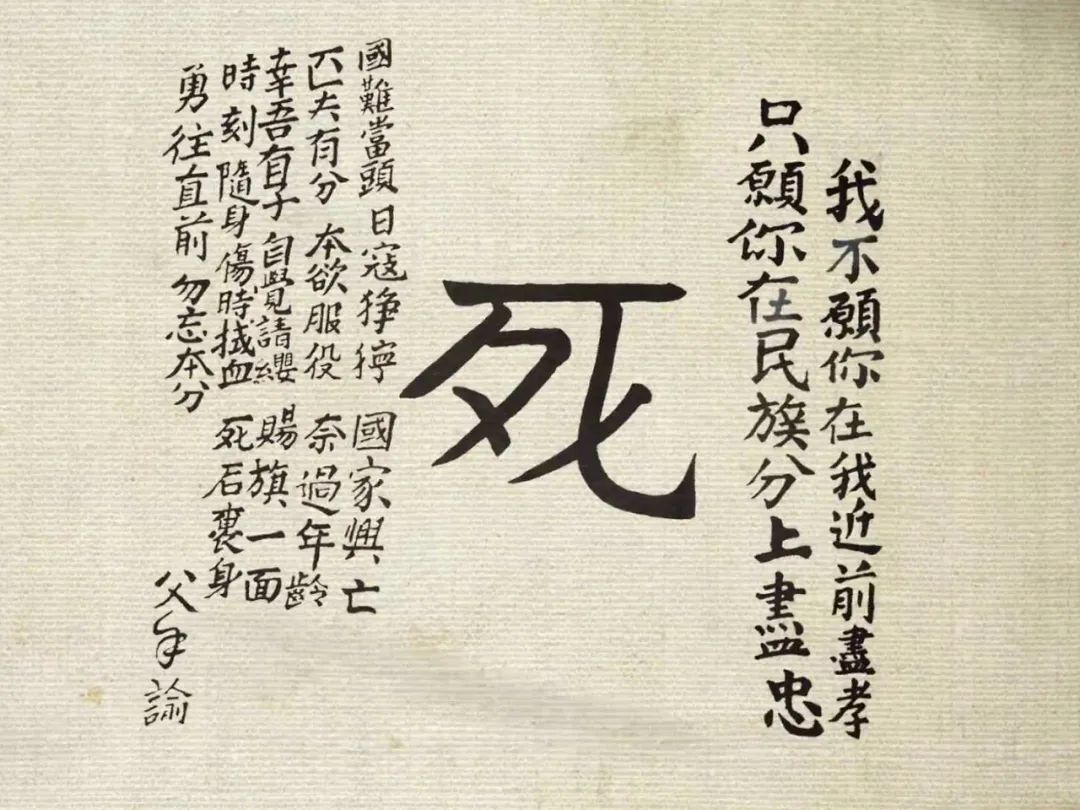 我不願你在我近前盡孝
只願你在民族分上盡忠
死
國難當頭 日寇猙獰 國家興亡
匹夫有分 本欲服役 奈過年齡
幸吾有子 自覺請纓 賜旗一面
時刻隨身 傷時拭血 死后裹身
勇往直前 勿忘本分
父手諭